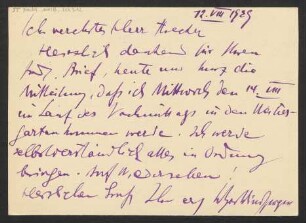 12. VIII 1939
Ich verehrter Herr
Herzlich dankend für Ihren
Brief, heute nur kurz die
Mitteilung, daß ich Mittwoch den 14. VIII
im Lauf des Vormittags in den
garten kommen werde. Ich werde
selbstverständlich alles in Ordnung
bringen. Auf Wiedersehen!
Herzlichen Gruß Ihr erg